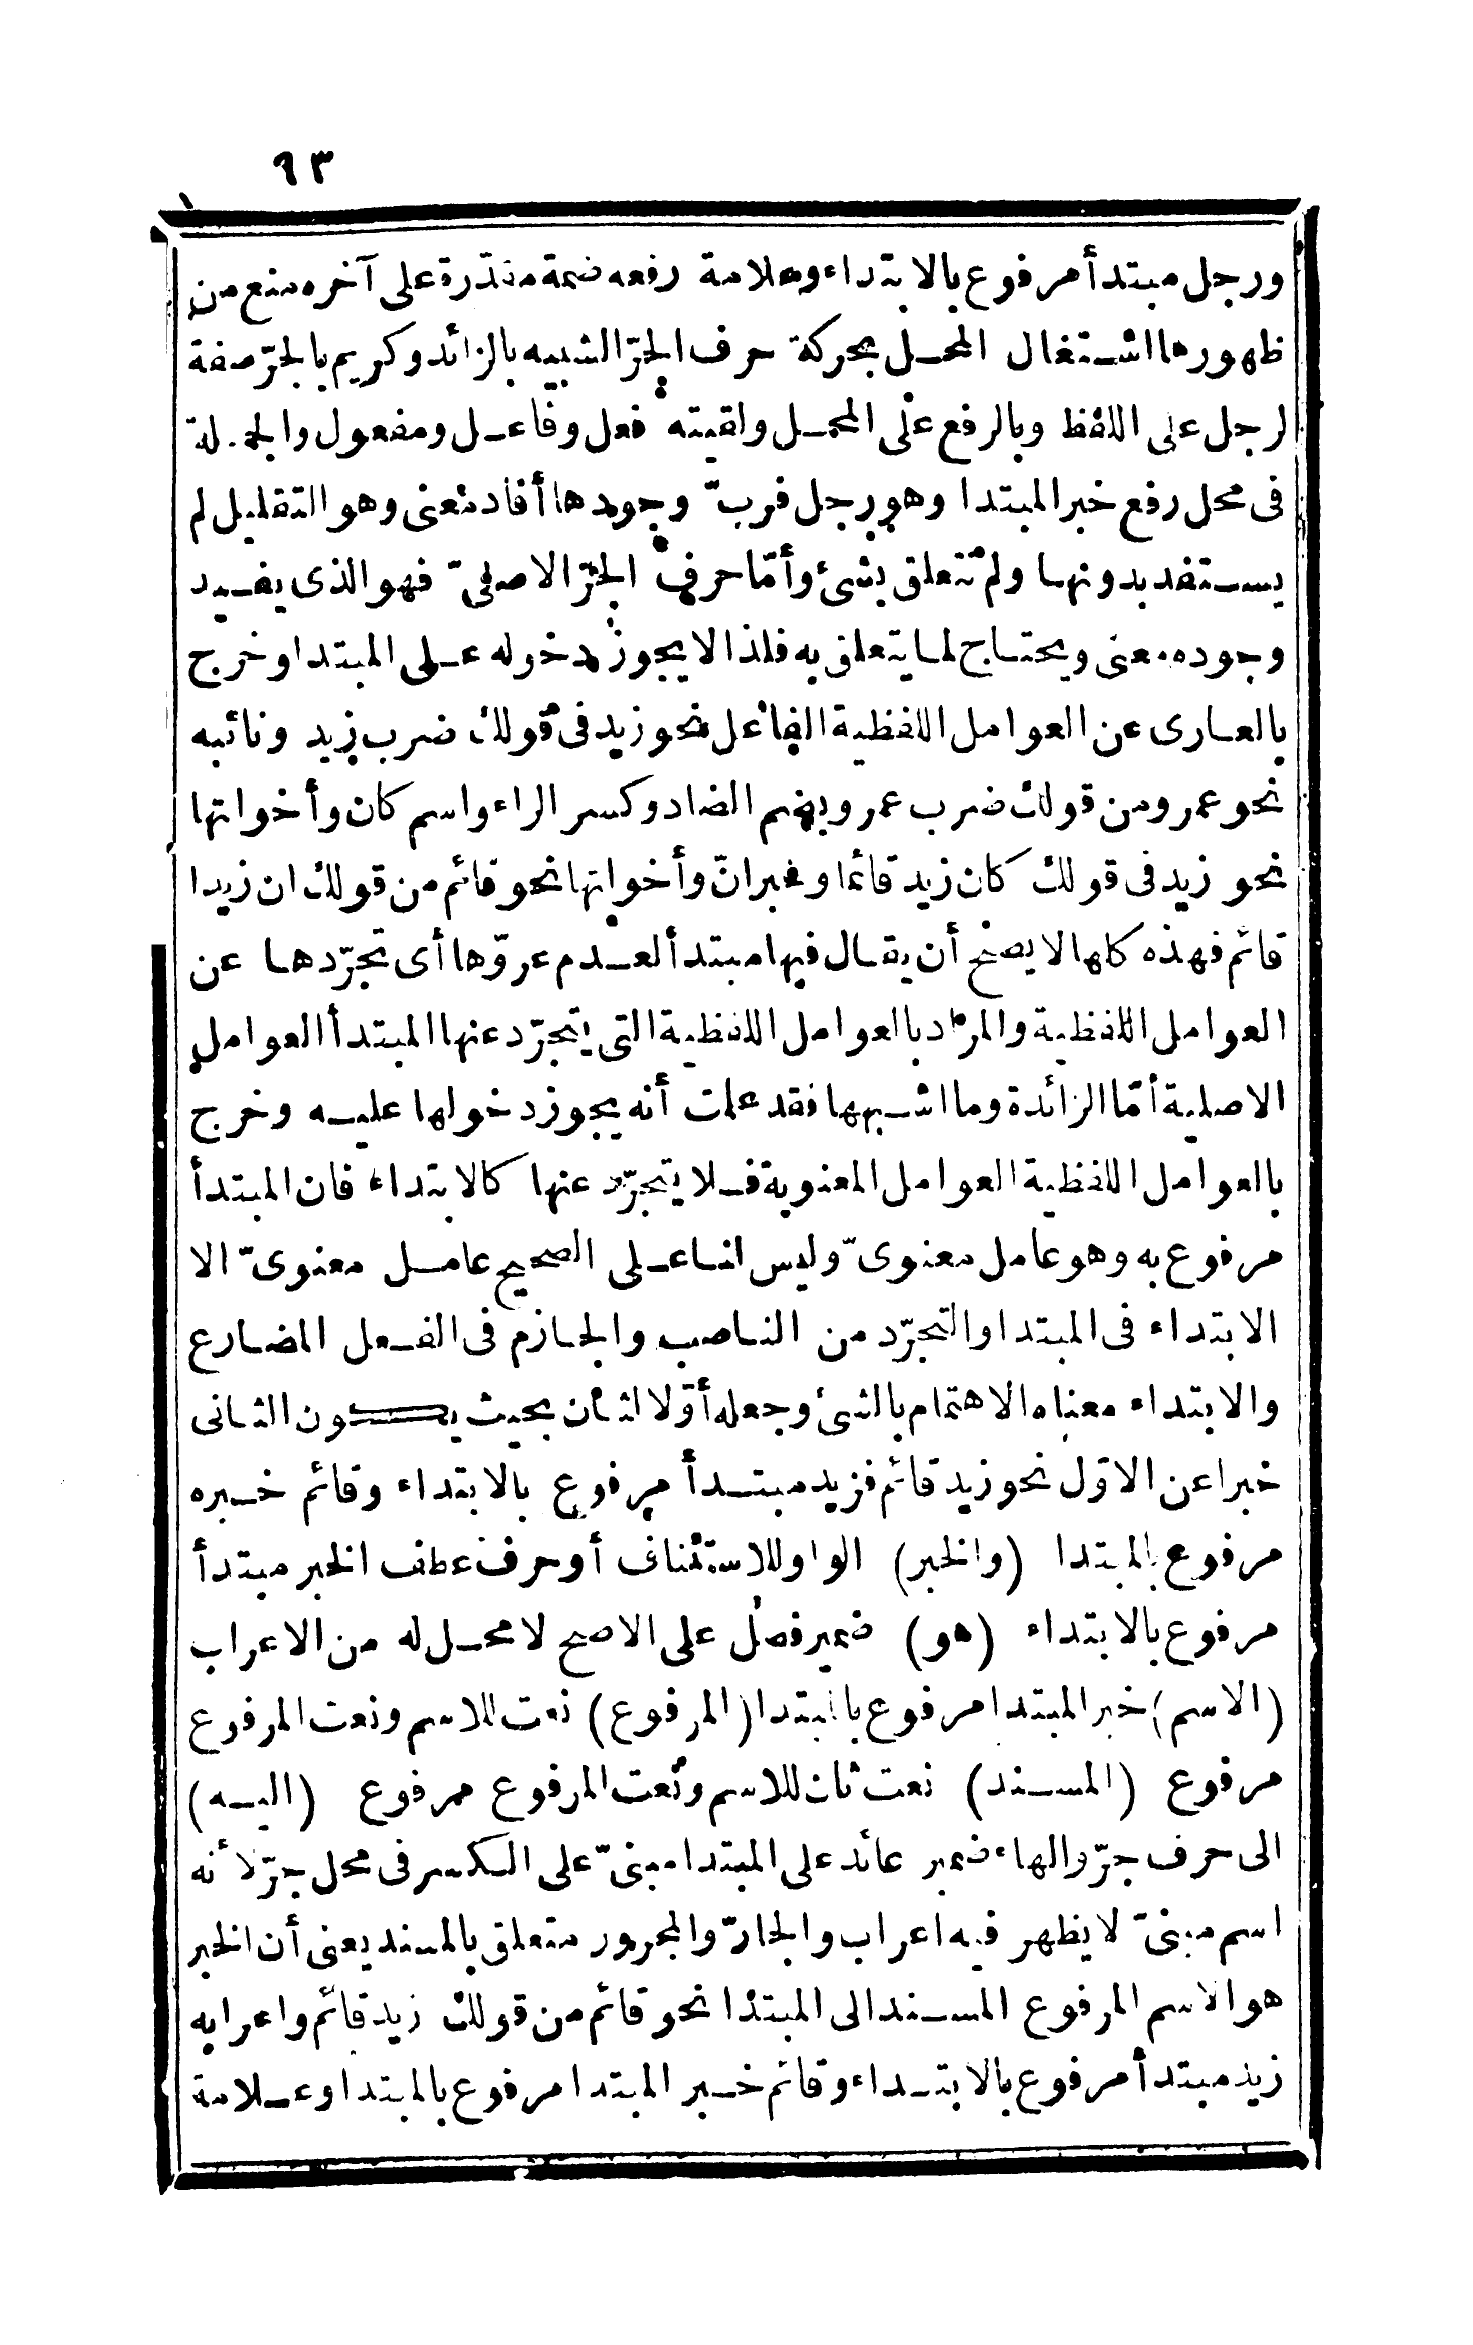 ٦٣
ورجل مبتدأ مرفوع بالابتداء وعلامة رفعه ضمة مقدّرة على آخره منع من
ظهورها اشتغال المحل بحركة حرف الجرّ الشبيه بالزائد وكريم بالجرّ صفة
لرجل على اللفظ وبالرفع على المحل ولقيته فعل وفاعل ومفعول والجملة
فى محل رفع خبر المبتدا وهو رجل فربّ وجودها أفاد معنى وهو التقليل لم
يستفد بدونها ولم تتعلق بشئ وأمّا حرف الجرّ الاصلىّ فهو الذى يفيد
وجوده معنى ويحتاج لما يتعلق به فلذا لا يجوز دخوله على المبتدا وخرج
بالعارى عن العوامل اللفظية الفاعل نحو زيد فى قولك ضرب زيد ونائبه
نحو عمرو من قولك ضرب عمرو بضم الضاد وكسر الراء واسم كان وأخواتها
نحو زيد فى قولك كان زيد قائما وخبر انّ وأخواتها نحو قائم من قولك ان زيدا
قائم فهذه كلها لا يصح أن يقال فيها مبتدأ لعدم عروّها أى تجرّدها عن
العوامل اللفظية والمراد بالعوامل اللفظية التى يتجرّد عنها المبتدأ العوامل
الاصلية أمّا الزائدة وما اشبهها فقد علمت أنه يجوز دخولها عليه وخرج
بالعوامل اللفظية العوامل المعنوية فلا يتجرّد عنها كالابتداء فان المبتدأ
مرفوع به وهو عامل معنوىّ وليس لنا على الصحيح عامل معنوىّ الا
الابتداء فى المبتدا والتجرّد من الناصب والجازم فى الفعل المضارع
والابتداء معناه الاهتمام بالشئ وجعله أوّلا لثان بحيث يكون الثانى
خبرا عن الاوّل نحو زيد قائم فزيد مبتدأ مرفوع بالابتداء وقائم خبره
مرفوع بالمبتدا (والخبر) الواو للاستئناف أو حرف عطف الخبر مبتدأ
مرفوع بالابتداء (هو) ضمير فصل على الاصح لا محل له من الاعراب
(الاسم) خبر المبتدا مرفوع بالمبتدا (المرفوع) نعت للاسم ونعت المرفوع
مرفوع (المسند) نعت ثان للاسم ونعت المرفوع مرفوع (اليه)
الى حرف جرّ والهاء ضمير عائد على المبتدا مبنىّ على الكسر فى محل جرّ لأنه
اسم مبنىّ لا يظهر فيه اعراب والجارّ والمجرور متعلق بالمسند يعنى أن الخبر
هو الاسم المرفوع المسند الى المبتدا نحو قائم من قولك زيد قائم واعرابه
زيد مبتدأ مرفوع بالابتداء وقائم خبر المبتدا مرفوع بالمبتدا وعلامة